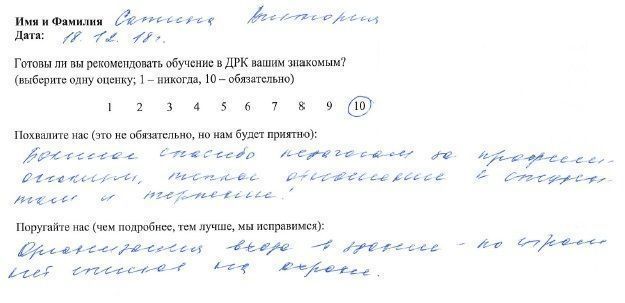 Имя и Фамилия Сатина Виктория
Дата: 18.12.18г.
Готовы ли вы рекомендовать обучение в ДРК вашим знакомым?
(выберите одну оценку; 1 – никогда, 10 – обязательно)
1 2 3 4 5 6 7 8 9 10
Похвалите нас (это не обязательно, но нам будет приятно):
Большое спасибо педагогам за професси-
онализм, теплое отношение к студен-
там и терпение!
Поругайте нас (чем подробнее, тем лучше, мы исправимся):
Организация входа в здание - по утрам
нет списков на охране.